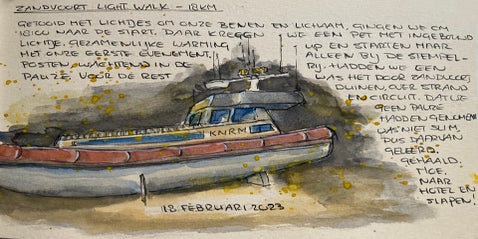 ZANDVOORT LIGHT WALK - 18KM.
GETOOID MET LICHTJES OM ONZE BENEN EN LICHAAM, GINGEN WE OM
18:00 NAAR DE START. DAAR KREGEN WE EEN PET MET INGEBOUWD
LICHTJE, GEZAMENLIJKE WARMING UP EN STARTEN MAAR
MET ONZE EERSTE EVENEMENT. ALLEEN BIJ DE STEMPEL-
POSTEN, WACHTEND IN DE RIJ, HADDEN WE EEN
PAUZE, VOOR DE REST WAS HET DOOR ZANDVOORT,
DUINEN, OVER STRAND
EN CIRCUIT. DAT WE
GEEN PAUZE
HADDEN GENOMEN
WAS NIET SLIM,
DUS DAARVAN
GELEERD.
GEHAALD,
MOE,
NAAR
HOTEL EN
SLAPEN!
KNRM
18 FEBRUARI 2023